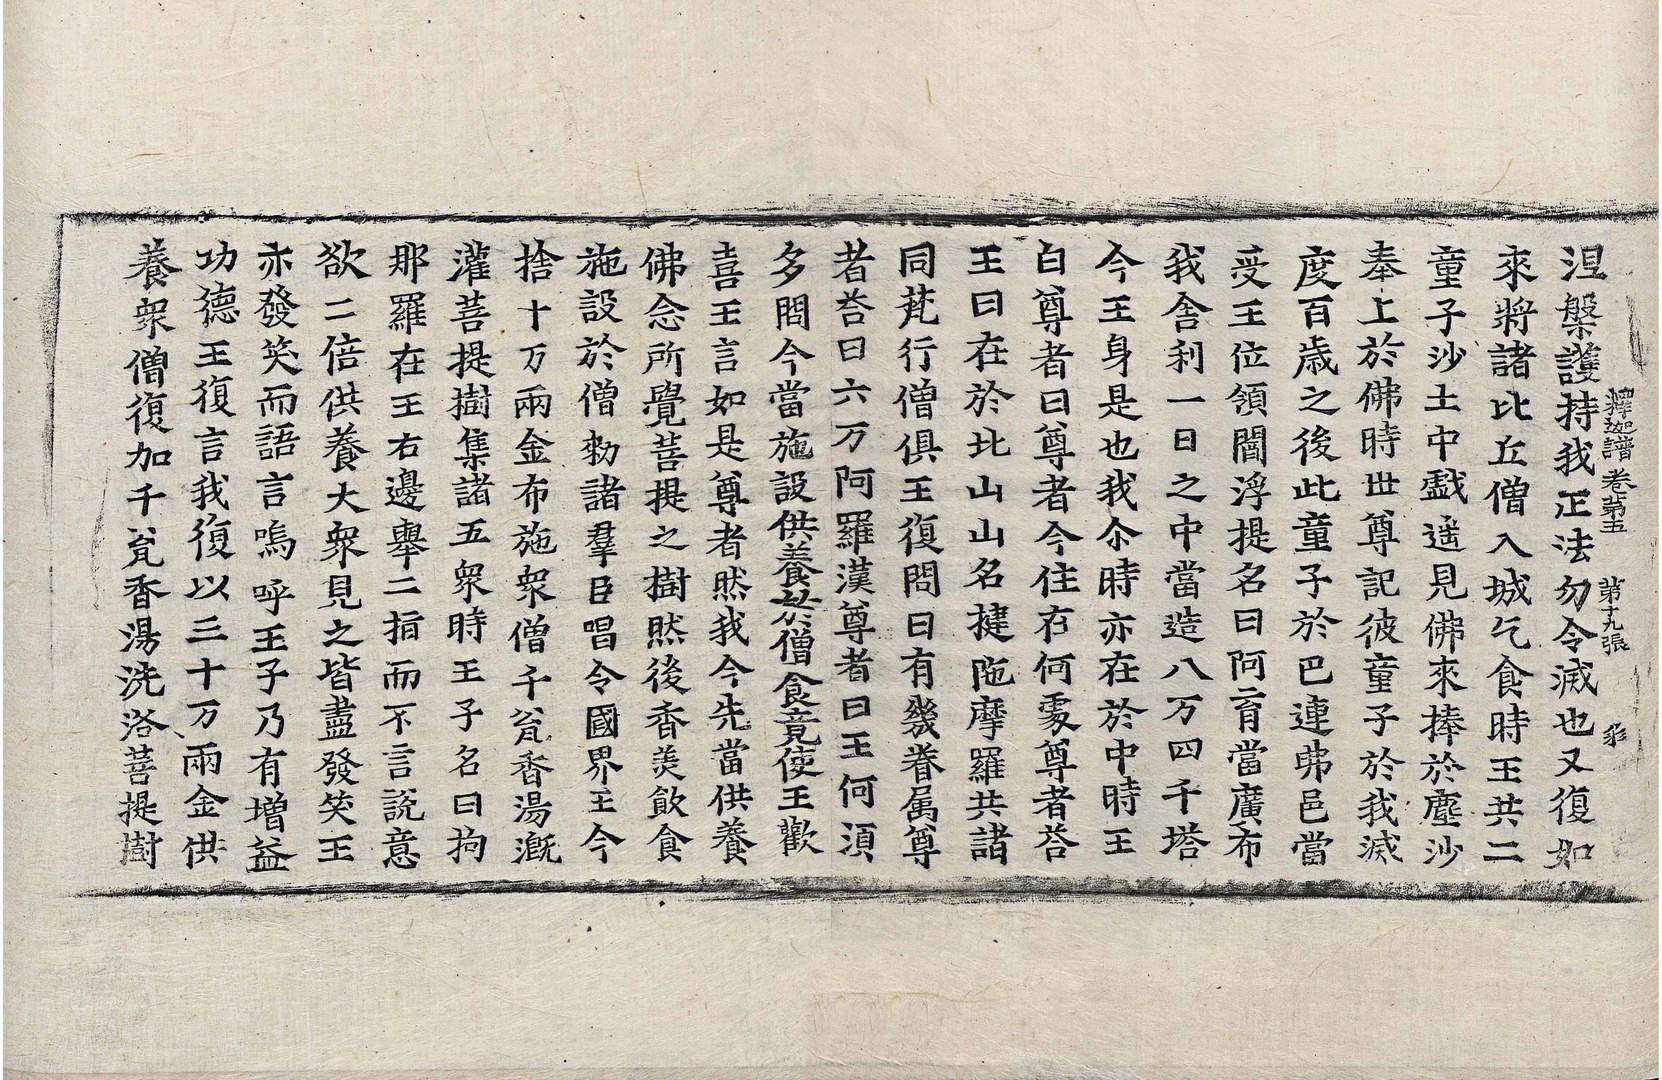 涅槃護持我正法勿令滅也又復如
釋迦譜卷第五 第十九張 彩
來將諸比丘僧入城乞食時王共二
童子沙土中戲遥見佛來捧於塵沙
奉上於佛時世尊記彼童子於我滅
度百歲之後此童子於巴連弗邑當
受王位領閻浮提名曰阿育當廣布
我舍利一日之中當造八万四千塔
今王身是也我尒時亦在於中時王
白尊者曰尊者今住在何處尊者荅
王曰在於北山山名揵陁摩羅共諸
同梵行僧俱王復問曰有幾眷属尊
者荅曰六万阿羅漢尊者曰王何須
多問今當施設供養於僧食竟使王歡
喜王言如是尊者然我今先當供養
佛念所覺菩提之樹然後香美飲食
施設於僧勑諸羣臣唱令國界王今
捨十万兩金布施衆僧千瓮香湯溉
灌菩提樹集諸五衆時王子名曰拘
那羅在王右邊舉二指而不言說意
欲二倍供養大衆見之皆盡發笑王
亦發笑而語言嗚呼王子乃有增益
功德王復言我復以三十万兩金供
養衆僧復加千瓮香湯洗浴菩提樹